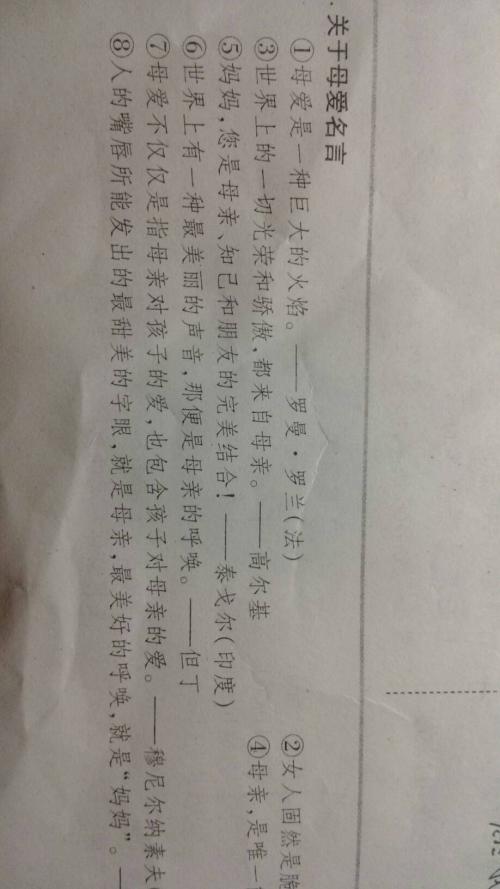 .关于母爱名言
①母爱是一种巨大的火焰。——罗曼·罗兰(法)
②女人固然是脆
③世界上的一切光荣和骄傲,都来自母亲。——高尔基
④母亲,是唯一
⑤妈妈,您是母亲、知己和朋友的完美结合!——泰戈尔(印度)
⑥世界上有一种最美丽的声音,那便是母亲的呼唤。——但丁
⑦母爱不仅仅是指母亲对孩子的爱,也包含孩子对母亲的爱。——穆尼尔纳素夫(
⑧人的嘴唇所能发出的最甜美的字眼,就是母亲,最美好的呼唤,就是“妈妈”。—